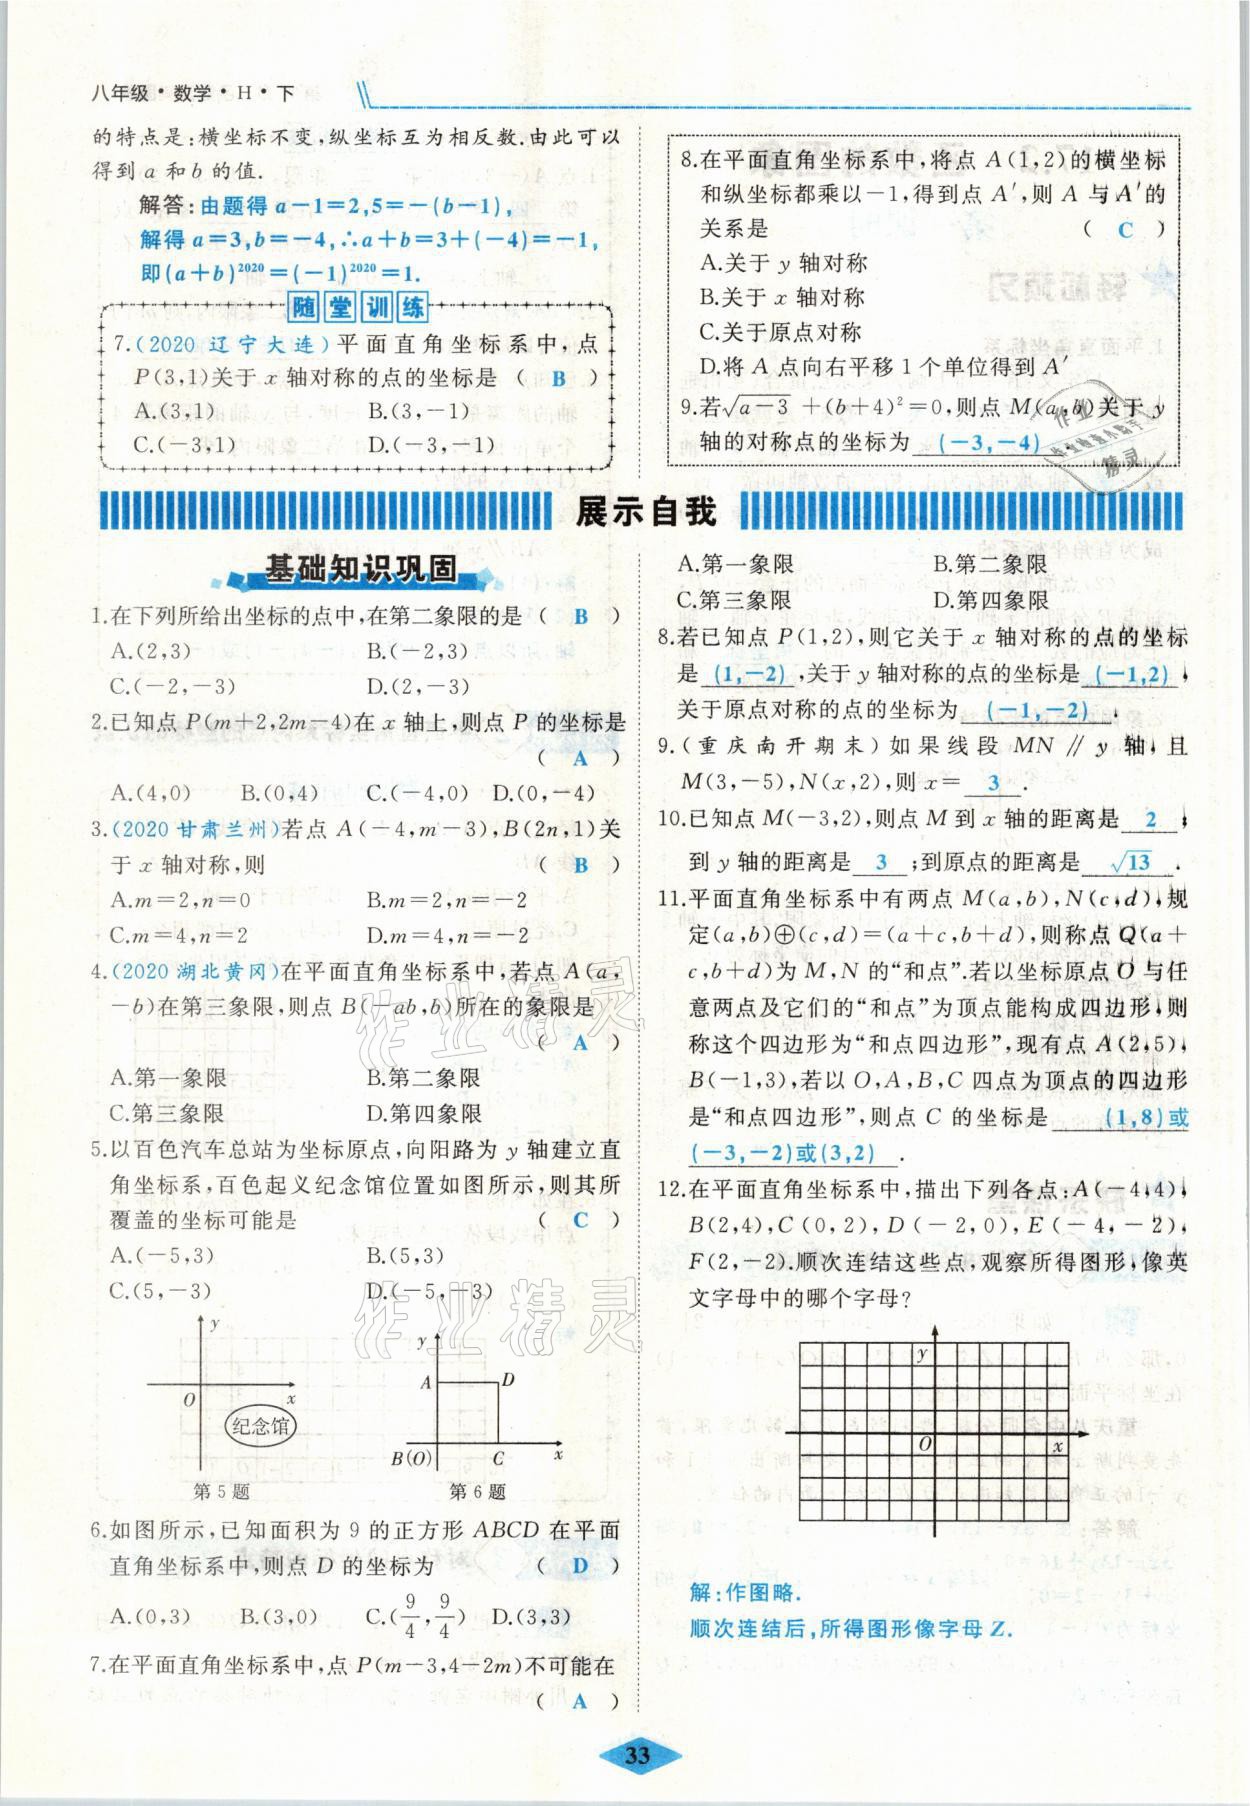 八年级·数学·H·下
的特点是:横坐标不变,纵坐标互为相反数.由此可以
得到 a 和 b 的值.
解答:由题得 a-1=2,5=-(b-1),
解得 a=3,b=-4,∴a+b=3+(-4)=-1,
即(a+b)²⁰²⁰=(-1)²⁰²⁰=1.
随堂训练
7.(2020 辽宁大连)平面直角坐标系中,点
P(3,1)关于 x 轴对称的点的坐标是 ( B )
A.(3,1) B.(3,-1)
C.(-3,1) D.(-3,-1)
8.在平面直角坐标系中,将点 A(1,2)的横坐标
和纵坐标都乘以-1,得到点 A′,则 A 与 A′的
关系是 ( C )
A.关于 y 轴对称
B.关于 x 轴对称
C.关于原点对称
D.将 A 点向右平移 1 个单位得到 A′
9.若√(a-3)+(b+4)²=0,则点 M(a,b)关于 y
轴的对称点的坐标为 (-3,-4)
展示自我
基础知识巩固
1.在下列所给出坐标的点中,在第二象限的是 ( B )
A.(2,3) B.(-2,3)
C.(-2,-3) D.(2,-3)
2.已知点 P(m+2,2m-4)在 x 轴上,则点 P 的坐标是
( A )
A.(4,0) B.(0,4) C.(-4,0) D.(0,-4)
3.(2020 甘肃兰州)若点 A(-4,m-3),B(2n,1)关
于 x 轴对称,则 ( B )
A.m=2,n=0 B.m=2,n=-2
C.m=4,n=2 D.m=4,n=-2
4.(2020 湖北黄冈)在平面直角坐标系中,若点 A(a,
-b)在第三象限,则点 B( ab,b)所在的象限是
( A )
A.第一象限 B.第二象限
C.第三象限 D.第四象限
5.以百色汽车总站为坐标原点,向阳路为 y 轴建立直
角坐标系,百色起义纪念馆位置如图所示,则其所
覆盖的坐标可能是 ( C )
A.(-5,3) B.(5,3)
C.(5,-3) D.(-5,-3)
y
O x
纪念馆
第 5 题
y
A D
B(O) C x
第 6 题
6.如图所示,已知面积为 9 的正方形 ABCD 在平面
直角坐标系中,则点 D 的坐标为 ( D )
A.(0,3) B.(3,0) C.(9/4,9/4) D.(3,3)
7.在平面直角坐标系中,点 P(m-3,4-2m)不可能在
( A )
A.第一象限 B.第二象限
C.第三象限 D.第四象限
8.若已知点 P(1,2),则它关于 x 轴对称的点的坐标
是 (1,-2) ,关于 y 轴对称的点的坐标是 (-1,2) ,
关于原点对称的点的坐标为 (-1,-2) .
9.(重庆南开期末)如果线段 MN∥y 轴,且
M(3,-5),N(x,2),则 x= 3 .
10.已知点 M(-3,2),则点 M 到 x 轴的距离是 2 ,
到 y 轴的距离是 3 ;到原点的距离是 √13 .
11.平面直角坐标系中有两点 M(a,b),N(c,d),规
定(a,b)⊕(c,d)=(a+c,b+d),则称点 Q(a+
c,b+d)为 M,N 的“和点”.若以坐标原点 O 与任
意两点及它们的“和点”为顶点能构成四边形,则
称这个四边形为“和点四边形”,现有点 A(2,5),
B(-1,3),若以 O,A,B,C 四点为顶点的四边形
是“和点四边形”,则点 C 的坐标是 (1,8)或
(-3,-2)或(3,2) .
12.在平面直角坐标系中,描出下列各点:A(-4,4),
B(2,4),C(0,2),D(-2,0),E(-4,-2),
F(2,-2).顺次连结这些点,观察所得图形,像英
文字母中的哪个字母?
y
O x
解:作图略.
顺次连结后,所得图形像字母 Z.
33
作业精灵
作业精灵
作业
精灵